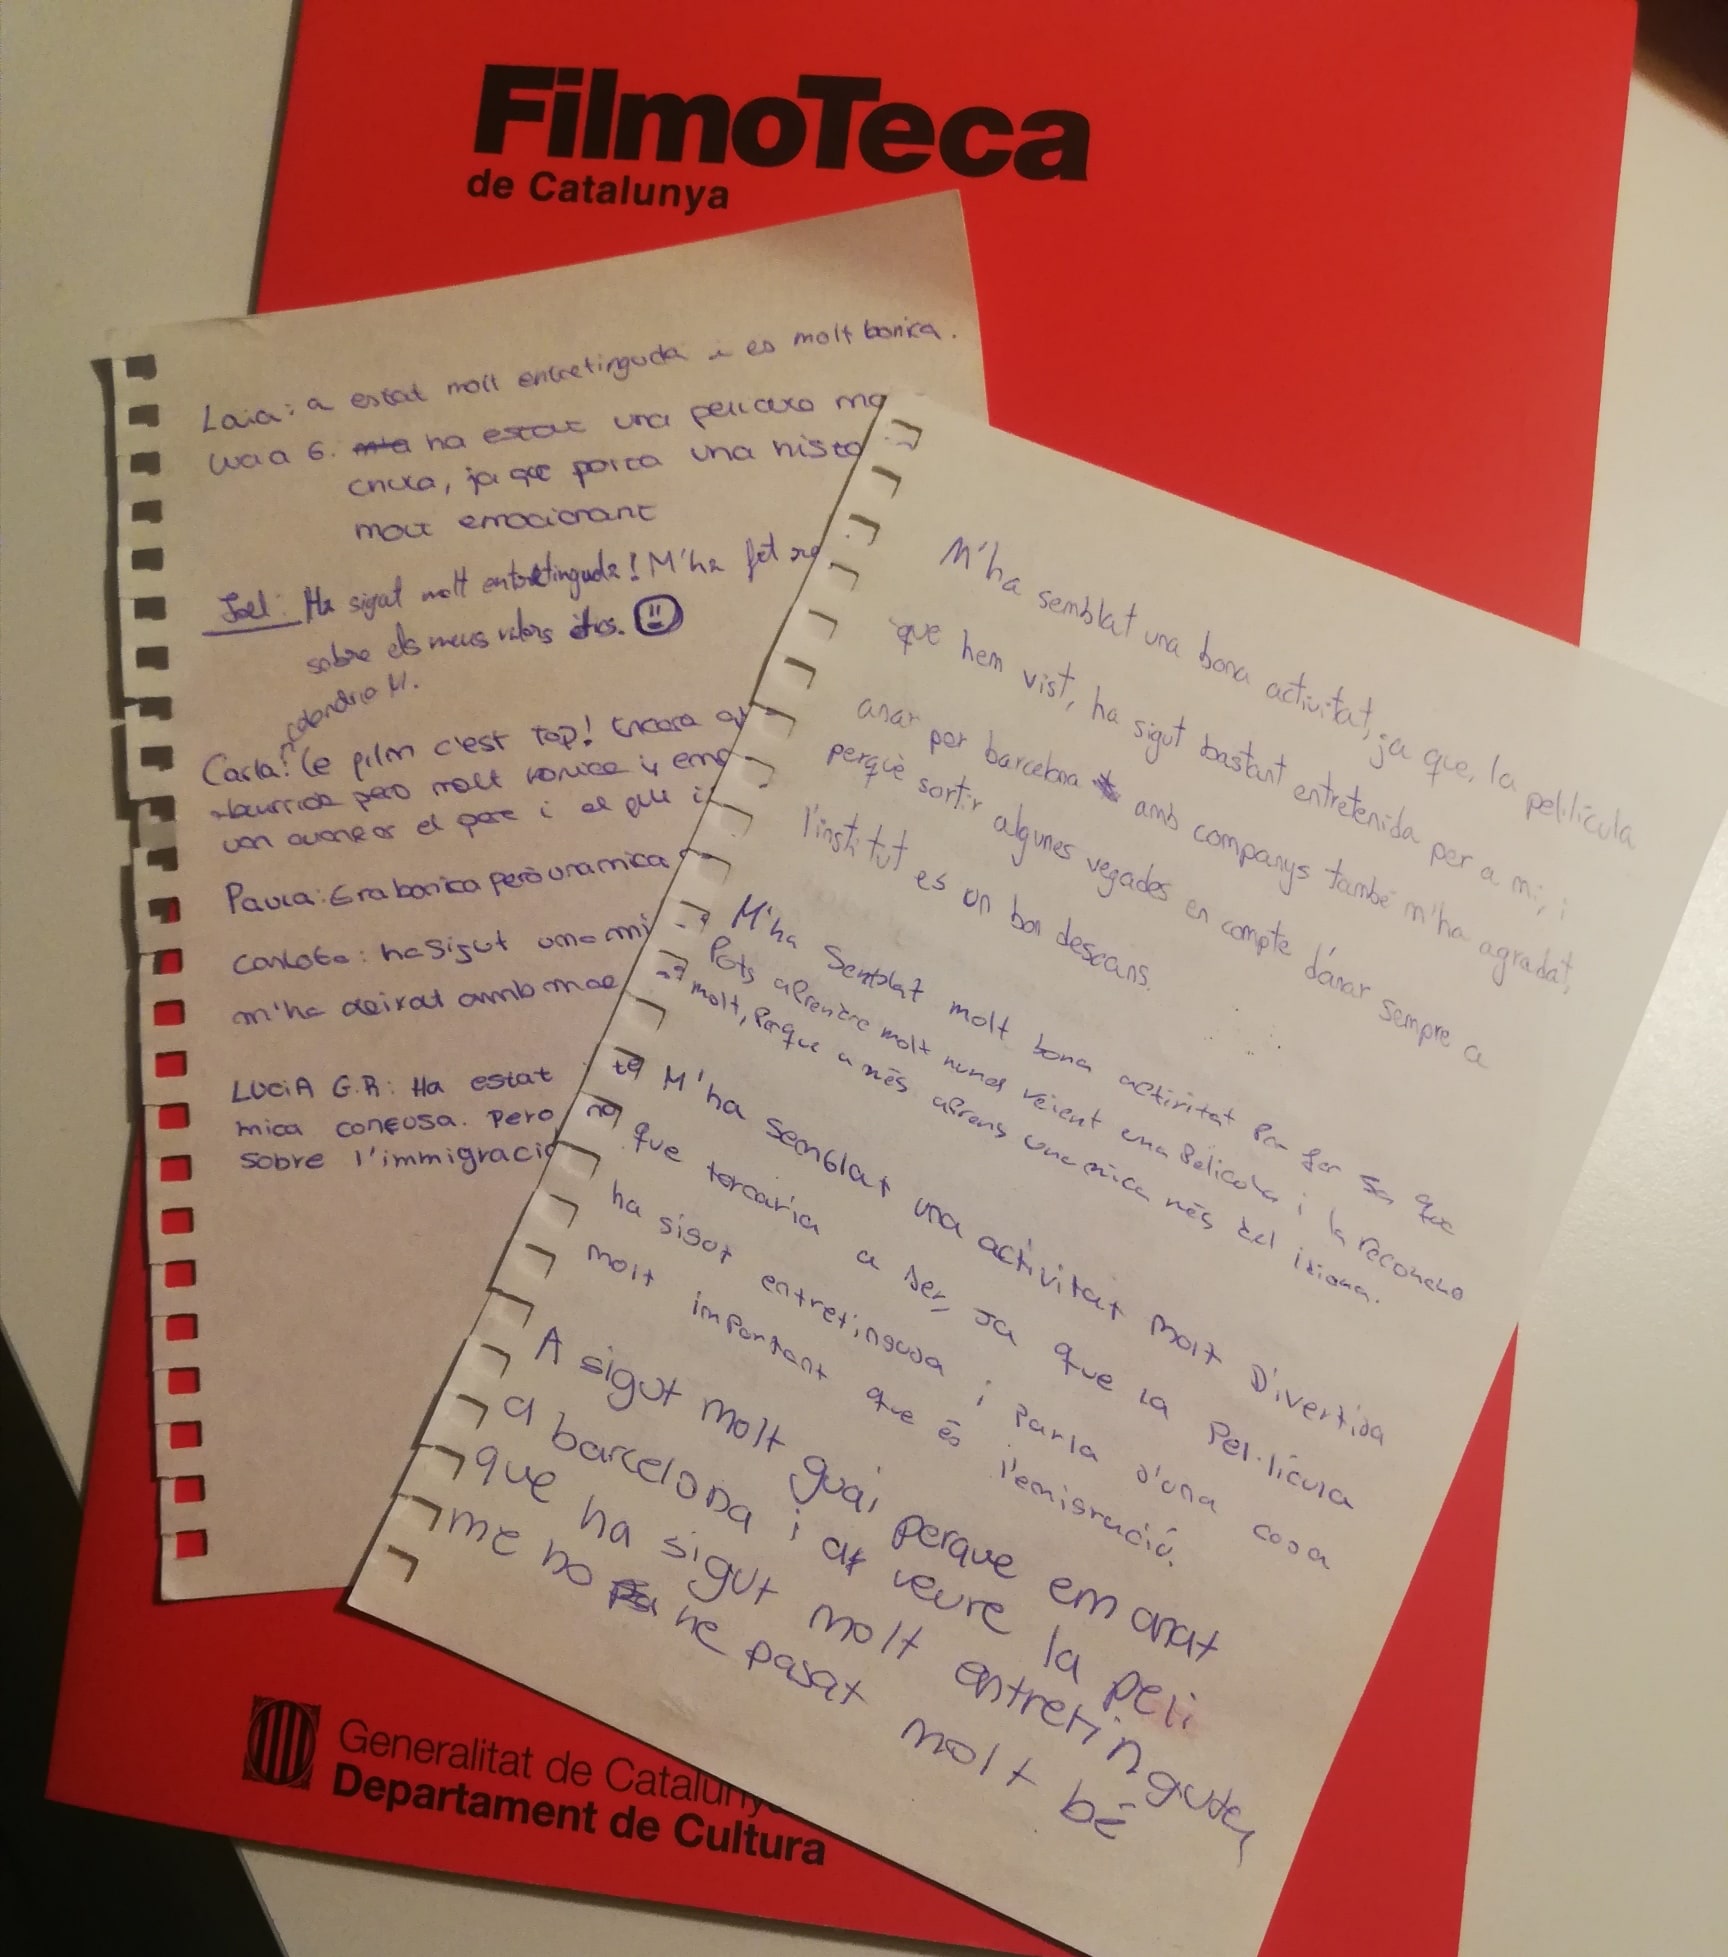 FilmoTeca
de Catalunya
Laia: a estat molt entretinguda i es molt bonica.
Lucia G. ha estat una pel·licula
ja que porta una
molt emocionant
Joel: Ha sigut molt entretinguda! M'ha fet
sobre els meus valors ètics.
Carla: Le film c'est top! Encara
aburrida pero molt bonica i
el pare i el
Paula: Era bonica però una mica
Carlota: ha sigut una mi
m'ha deixat amb
LUCIA G.R: Ha estat
mica confusa. Pero
sobre l'immigració
M'ha semblat una bona activitat, ja que, la pel·lícula
que hem vist, ha sigut bastant entretenida per a mi, i
anar per barcelona amb companys també m'ha agradat,
perquè sortir algunes vegades en compte d'anar sempre a
l'institut es un bon descans.
M'ha Semblat molt bona activitat Per fer Ja que
Pots aPrendre molt nomes veient una Pelicola i la recomeno
molt, Perque a més aPrens una mica més del idioma.
M'ha semblat una activitat molt Divertida
que tornaria a fer, Ja que la Pel·lícula
ha sigut entretinguda i Parla d'una cosa
molt important que és l'emigració.
A sigut molt guai perque em anat
a barcelona i a veure la peli
que ha sigut molt entretinguda,
me ho he pasat molt bé
Generalitat de Catalunya
Departament de Cultura